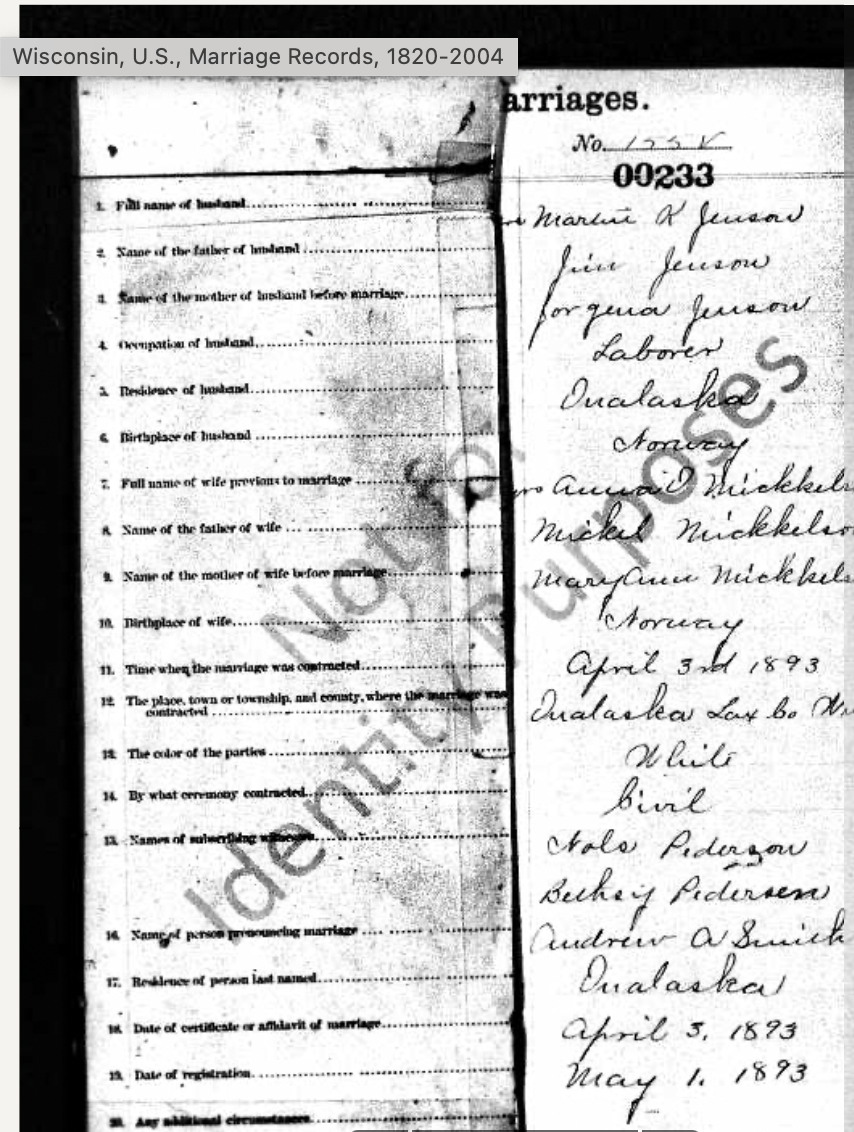 Wisconsin, U.S., Marriage Records, 1820-2004
arriages.
No.
00233
1. Full name of husband Martin K Jenson
2. Name of the father of husband Jim Jenson
3. Name of the mother of husband before marriage Jorgena Jenson
4. Occupation of husband Laborer
5. Residence of husband Onalaska
6. Birthplace of husband Norway
7. Full name of wife previous to marriage Anna O Mickkels
8. Name of the father of wife Mickel Mickkelso
9. Name of the mother of wife before marriage Mary Ann Mickkels
10. Birthplace of wife Norway
11. Time when the marriage was contracted April 3rd 1893
12. The place, town or township, and county, where the marriage was
contracted Onalaska Lax Co Wi
13. The color of the parties White
14. By what ceremony contracted Civil
15. Names of subscribing witnesses Nols Pederson
Bethsy Pedersen
16. Name of person pronouncing marriage Andrew A Smith
17. Residence of person last named Onalaska
18. Date of certificate or affidavit of marriage April 3, 1893
19. Date of registration May 1, 1893
20. Any additional circumstances
Not for
Identity Purposes